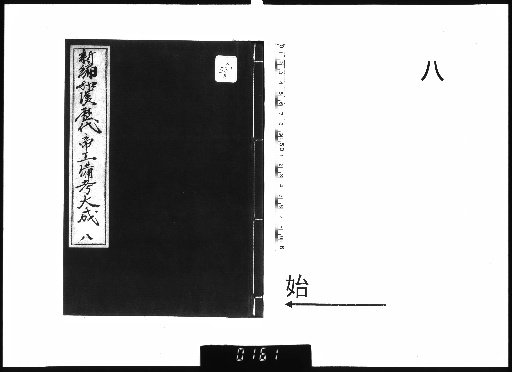 八
始
新編和漢歴代帝王備考大成 八
0161